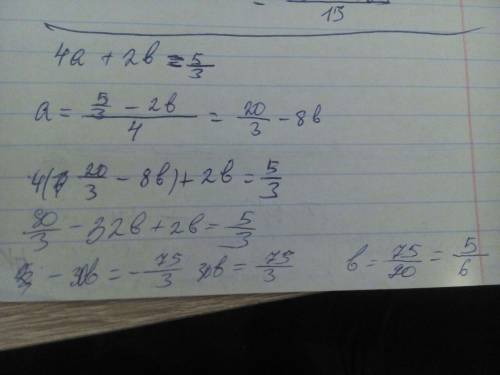 13
4a + 2b = 5/3
a = (5/3 - 2b)/4 = 20/3 - 8b
4(20/3 - 8b) + 2b = 5/3
80/3 - 32b + 2b = 5/3
- 30b = - 75/3 30b = 75/3 b = 75/90 = 5/6